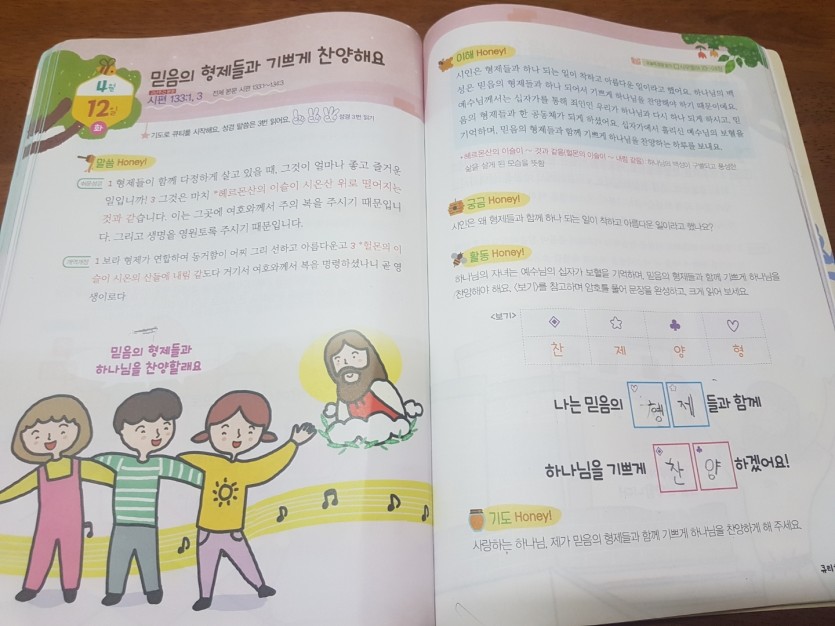 4월
12일
화
믿음의 형제들과 기쁘게 찬양해요
시편 133:1, 3
전체 본문 시편 133:1~134:3
★ 기도로 큐티를 시작해요. 성경 말씀은 3번 읽어요.
말씀 Honey!
1 형제들이 함께 다정하게 살고 있을 때, 그것이 얼마나 좋고 즐거운
일입니까! 3 그것은 마치 *헤르몬산의 이슬이 시온산 위로 떨어지는
것과 같습니다. 이는 그곳에 여호와께서 주의 복을 주시기 때문입니
다. 그리고 생명을 영원토록 주시기 때문입니다.
개역개정
1 보라 형제가 연합하여 동거함이 어찌 그리 선하고 아름다운고 3 *헐몬의 이
슬이 시온의 산들에 내림 같도다 거기서 여호와께서 복을 명령하셨나니 곧 영
생이로다
믿음의 형제들과
하나님을 찬양할래요
이해 Honey!
시인은 형제들과 하나 되는 일이 착하고 아름다운 일이라고 했어요. 하나님의 백
성은 믿음의 형제들과 하나 되어서 기쁘게 하나님을 찬양해야 하기 때문이에요.
예수님께서는 십자가를 통해 죄인인 우리가 하나님과 다시 하나 되게 하시고, 믿
음의 형제들과 한 공동체가 되게 하셨어요. 십자가에서 흘리신 예수님의 보혈을
기억하며, 믿음의 형제들과 함께 기쁘게 하나님을 찬양하는 하루를 보내요.
*헤르몬산의 이슬이 ~ 것과 같음(헐몬의 이슬이 ~ 내림 같음): 하나님의 백성이 구별되고 풍성한
삶을 살게 된 모습을 뜻함
궁금 Honey!
시인은 왜 형제들과 함께 하나 되는 일이 착하고 아름다운 일이라고 했나요?
활동 Honey!
하나님의 자녀는 예수님의 십자가 보혈을 기억하며, 믿음의 형제들과 함께 기쁘게 하나님을
찬양해야 해요. <보기>를 참고하며 암호를 풀어 문장을 완성하고, 크게 읽어 보세요.
<보기>
찬 제 양 형
나는 믿음의 형 제 들과 함께
하나님을 기쁘게 찬 양 하겠어요!
기도 Honey!
사랑하는 하나님, 제가 믿음의 형제들과 함께 기쁘게 하나님을 찬양하게 해 주세요.